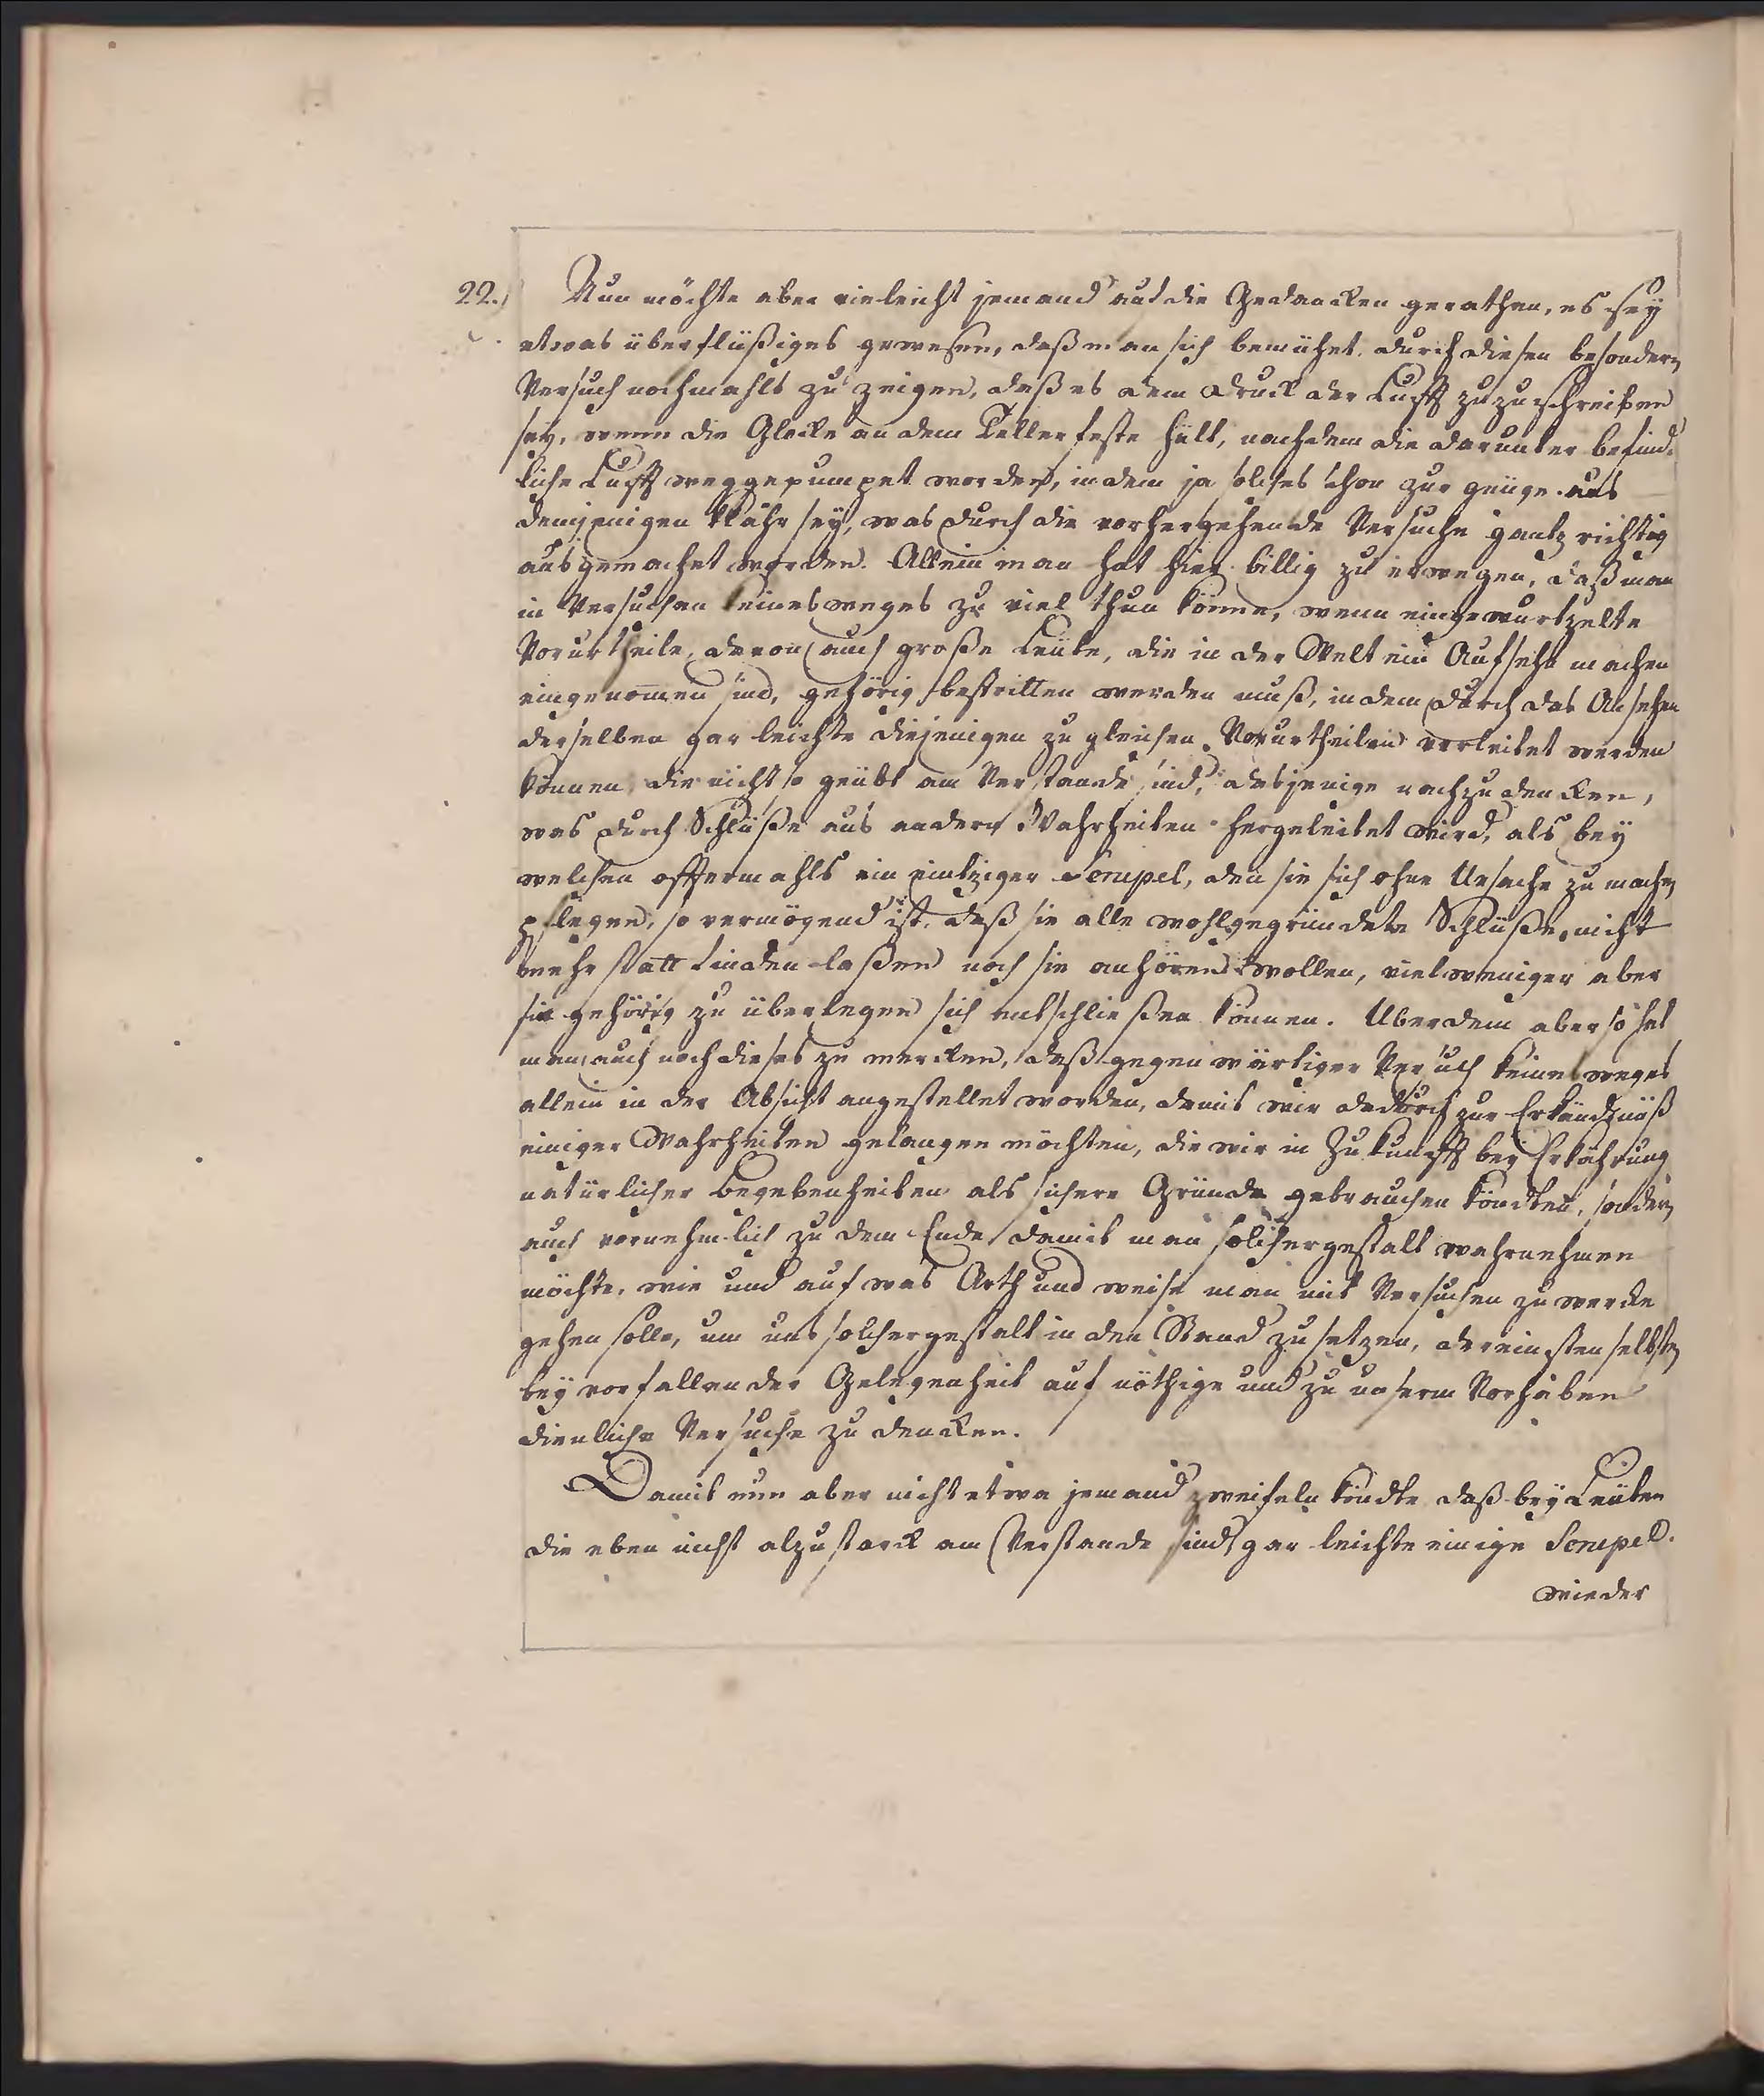 22.) Nun möchte aber vieleicht jemand auf die Gedancken gerathen, es sey
etwas überflüßiges gewesen, daß man sich bemühet durch diesen besondern
Versuch nochmahls zu zeigen, daß es dem Druck der Lufft zuzuschreiben
sey, wenn die Glocke an dem Teller feste hält, nachdem die darunter befind-
liche Lufft weggepumpet worden, in dem ja solches schon zur genüge aus
demjenigen klahr sey, was durch die vorhergehende Versuche gantz richtig
ausgemachet worden. Allein man hat hier billig zu erwegen, daß man
in Versuchen keinesweges zu viel thun könne, wenn eingewurtzelte
Vorurtheile, davon auch große Leüte, die in der Welt ein Aufsehn machen
eingenommen sind, gehörig bestritten werden muß, in dem durch das Ansehen
derselben gar leichte diejenigen zu gleichen Vorurtheilen verleitet werden
können, die nicht so geübt am Verstande sind, dasjenige nachzudencken,
was durch Schlüße aus andern Wahrheiten hergeleitet wird, als bey
welchen offtermahls ein eintziger Scrupel, den sie sich ohne Ursache zu machen
pflegen, so vermögend ist, daß sie alle wohlgegründete Schlüße nicht
mehr statt finden laßen noch sie anhören wollen, vielweniger aber
sie gehörig zu überlegen sich entschließen können. Uberdem aber so hat
man auch noch dieses zu mercken, daß gegenwärtiger Versuch keinesweges
allein in der Absicht angestellet worden, damit wir dadurch zur Erkändtnüß
einiger Wahrheiten gelangen möchten, die wir in Zukunfft bey Erklährung
natürlicher begebenheiten als sichere Gründe gebrauchen köndten, sondern
auch vornehmlich zu dem Ende damit man solchergestalt wahrnehmen
möchte, wie und auf was Arth und weise man mit Versuchen zu wercke
gehen solle, um uns solchergestalt in den Stand zu setzen, dereinsten selbsten
bey vorfallender Gelegenheit auf nöthige und zu unserm Vorhaben
dienliche Versuche zu dencken.
Damit nun aber nicht etwa jemand zweifeln köndte daß bey Leüten
die eben nicht alzu starck am Verstande sind gar leichte einige Scrupel
wieder